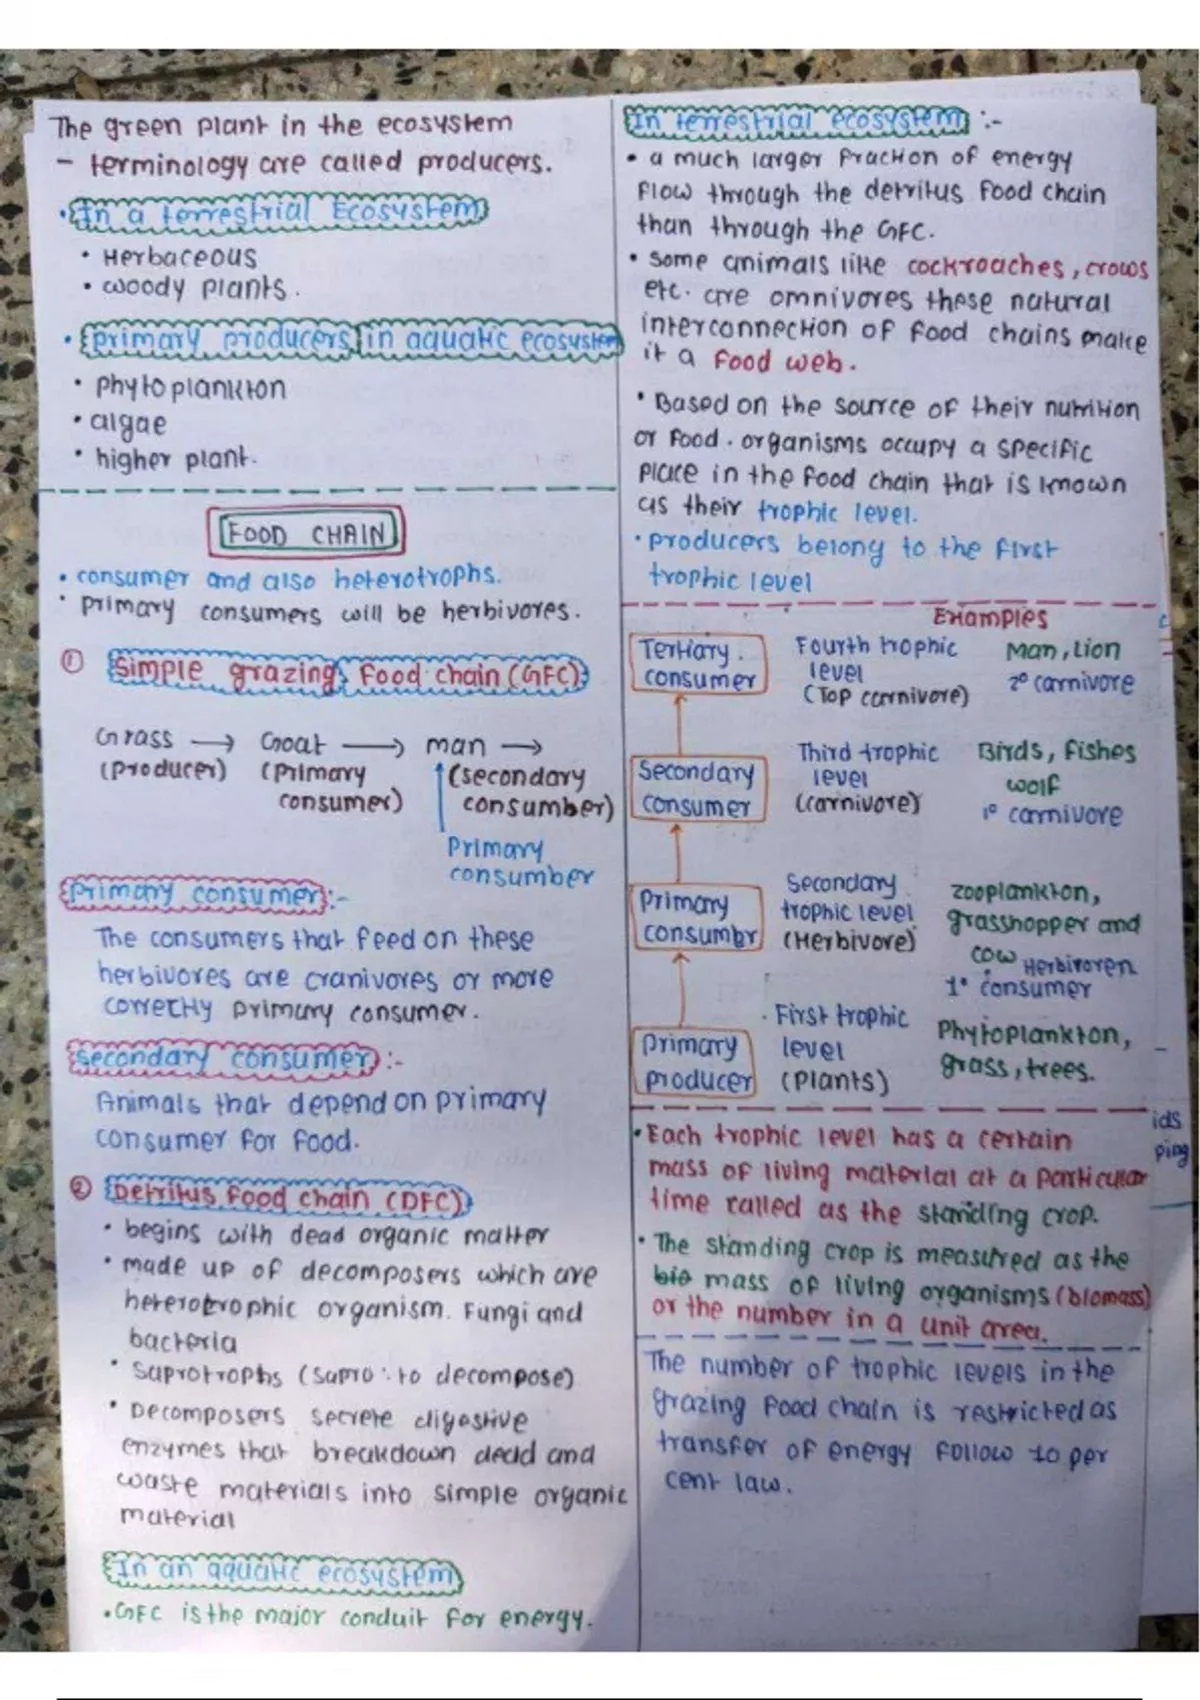 The green plant in the ecosystem
- terminology are called producers.
• In a terrestrial Ecosystem
• Herbaceous
• woody plants.
• primary producers in aquatic ecosystem
• phytoplankton
• algae
• higher plant.
FOOD CHAIN
• consumer and also heterotrophs.
• primary consumers will be herbivores.
① Simple grazing food chain (GFC)
Grass → Goat → man →
(producer) (primary (secondary
consumer) consumber)
Primary
consumber
primary consumer:-
The consumers that feed on these
herbivores are cranivores or more
correctly primary consumer.
secondary consumer:-
Animals that depend on primary
consumer for food.
② Detritus food chain (DFC)
• begins with dead organic matter
• made up of decomposers which are
heterotrophic organism. Fungi and
bacteria
• Saprotrophs (sapro: to decompose)
• Decomposers secrete digestive
enzymes that breakdown dead and
waste materials into simple organic
material
In an aquatic ecosystem
• GFC is the major conduit for energy.
In terrestrial ecosystem :-
• a much larger fraction of energy
flow through the detritus food chain
than through the GFC.
• some animals like cockroaches, crows
etc. are omnivores these natural
interconnection of food chains make
it a food web.
• Based on the source of their nutrition
or food. organisms occupy a specific
place in the food chain that is known
as their trophic level.
• producers belong to the first
trophic level
Examples
Tertiary Fourth trophic Man, Lion
consumer level 2° carnivore
(Top carnivore)
Secondary Third trophic Birds, fishes
consumer level wolf
(carnivore) 1° carnivore
Primary Secondary zooplankton,
consumbr trophic level grasshopper and
(Herbivore) cow Herbivoren
1° consumer
primary First trophic Phytoplankton,
producer level grass, trees.
(plants)
• Each trophic level has a certain
mass of living material at a particular
time called as the standing crop.
• The standing crop is measured as the
bio mass of living organisms (biomass)
or the number in a unit area.
The number of trophic levels in the
grazing food chain is restricted as
transfer of energy follow 10 per
cent law.
ids
ping